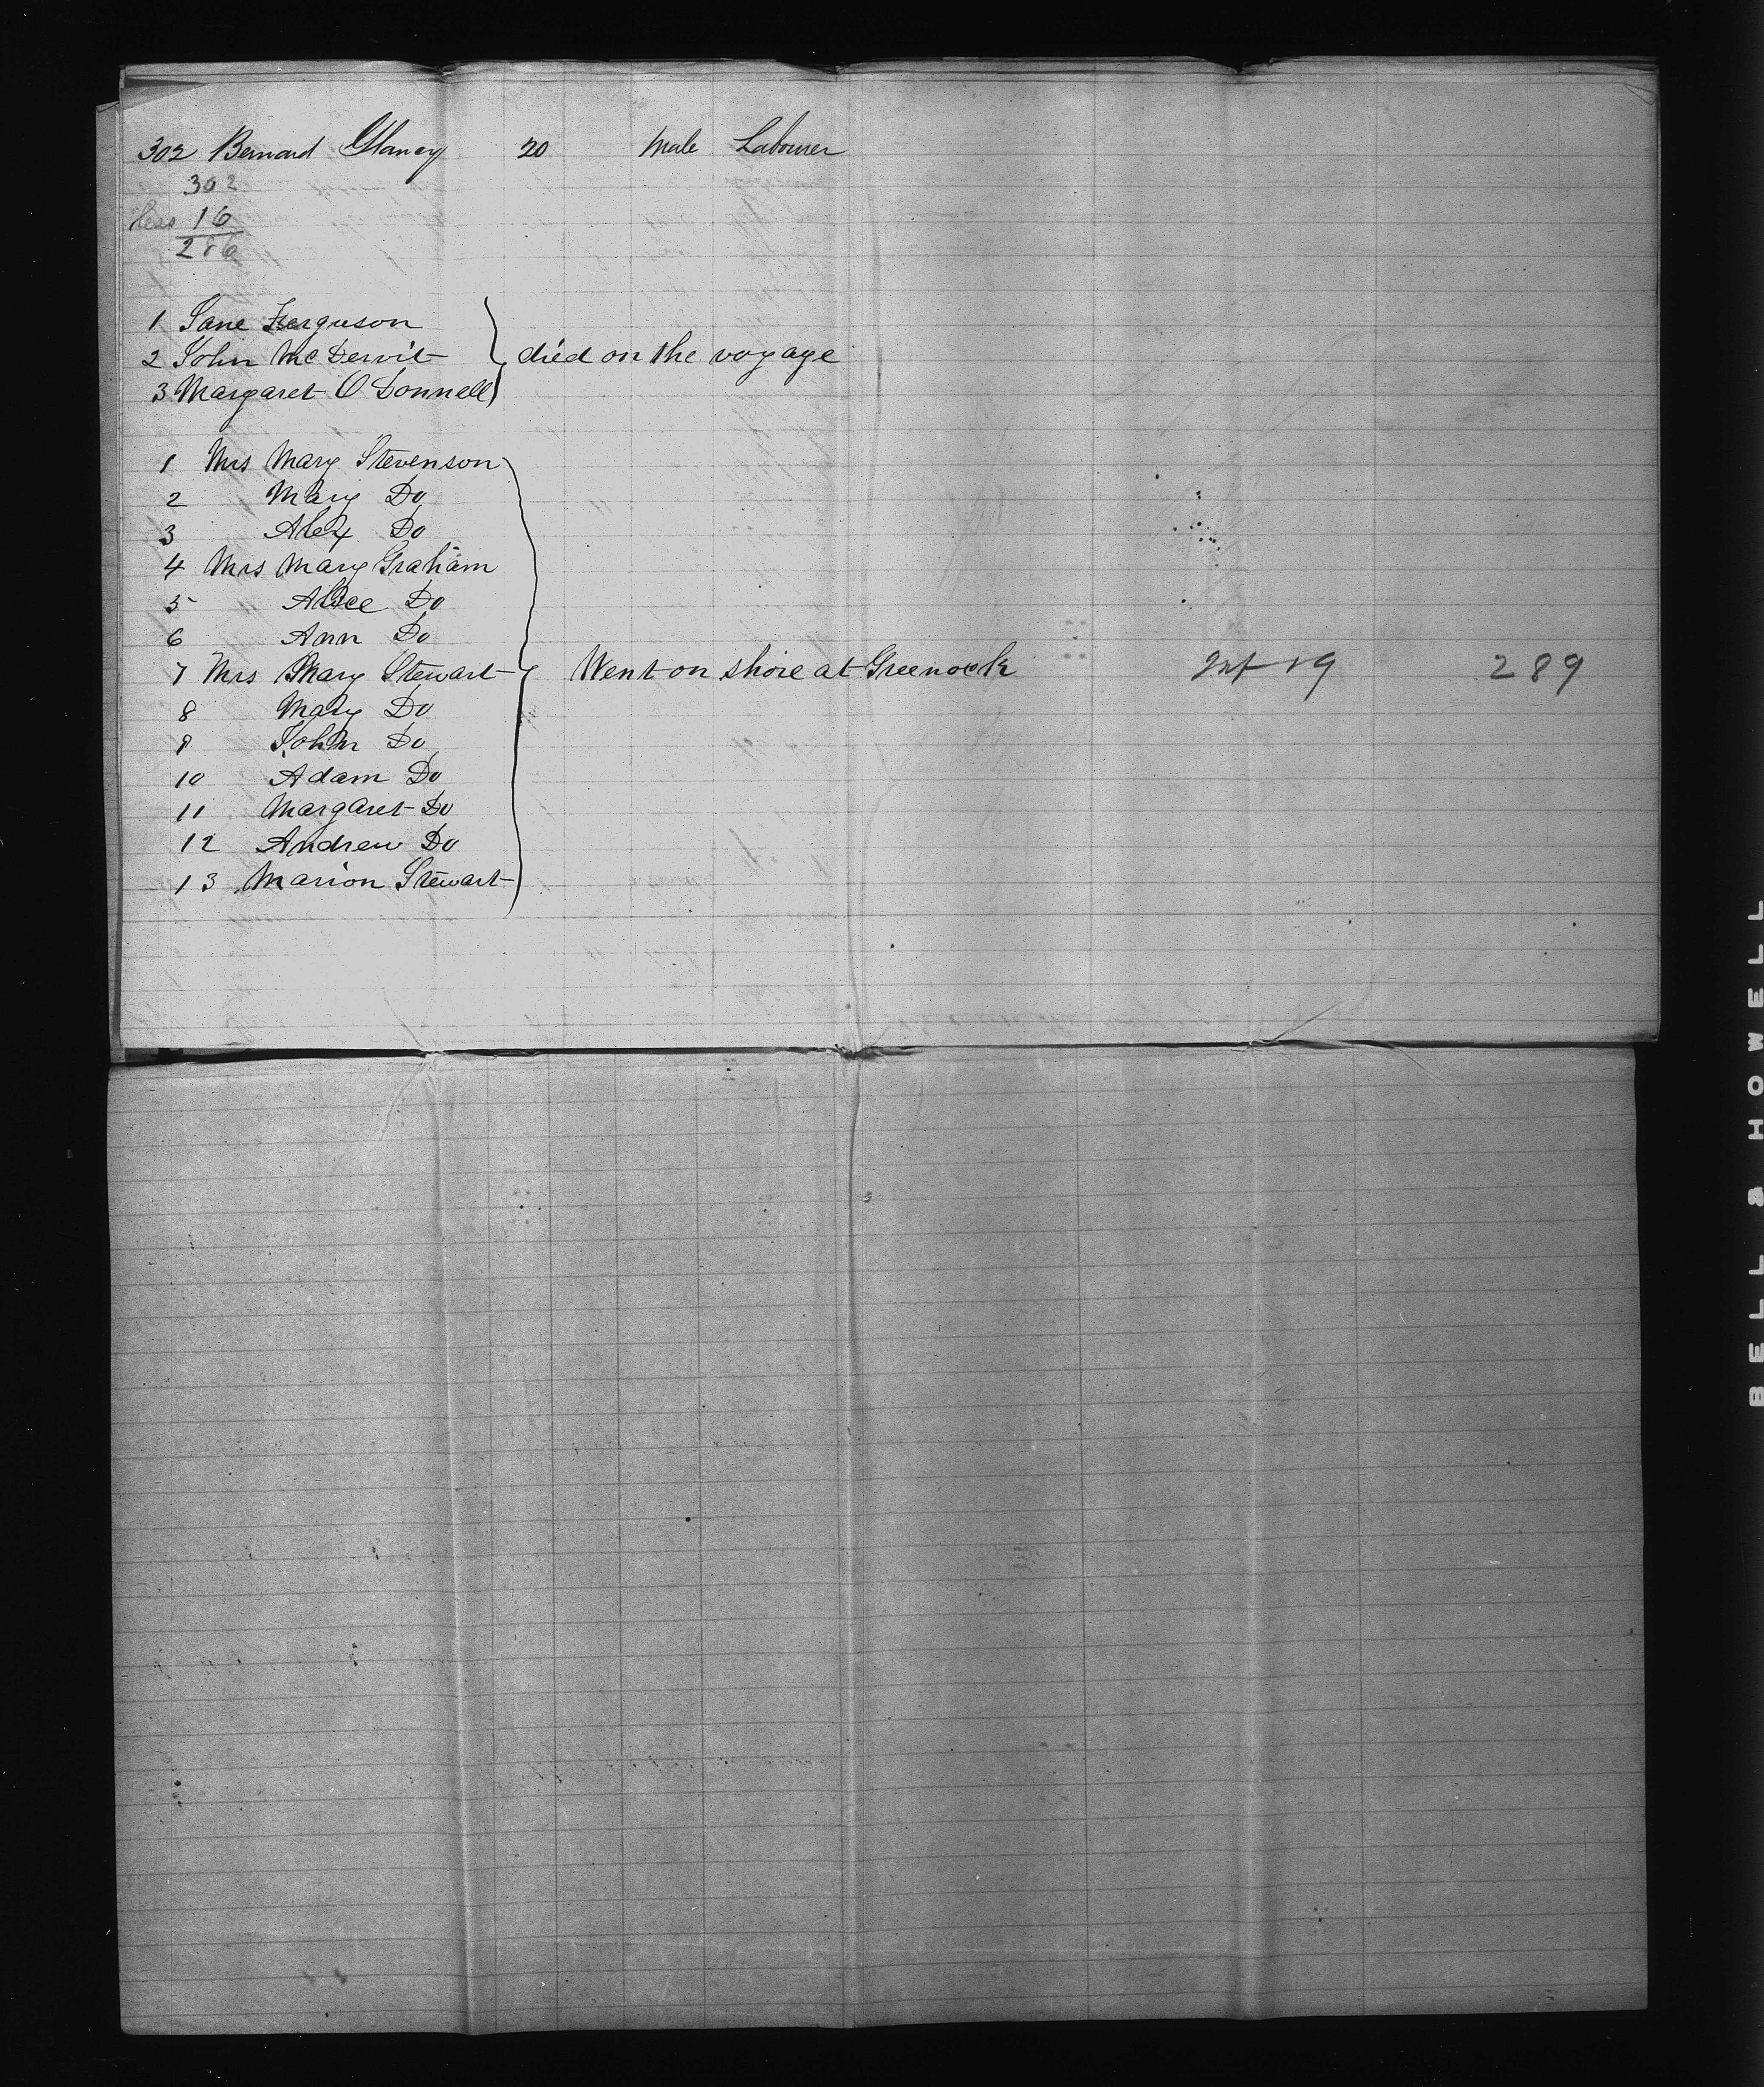 302 Bernard Glancy 20 Male Labourer
302
less 16
286
1 Jane Ferguson
2 John McDervit died on the voyage
3 Margaret O Donnell
1 Mrs Mary Stevenson
2 Mary Do
3 Alex Do
4 Mrs Mary Graham
5 " Alice Do
6 Ann Do
7 Mrs Mary Stewart Went on shore at Greenock Inf 19 289
8 Mary Do
9 John Do
10 Adam Do
11 Margaret Do
12 Andrew Do
13 Marion Stewart
BELL & HOWELL